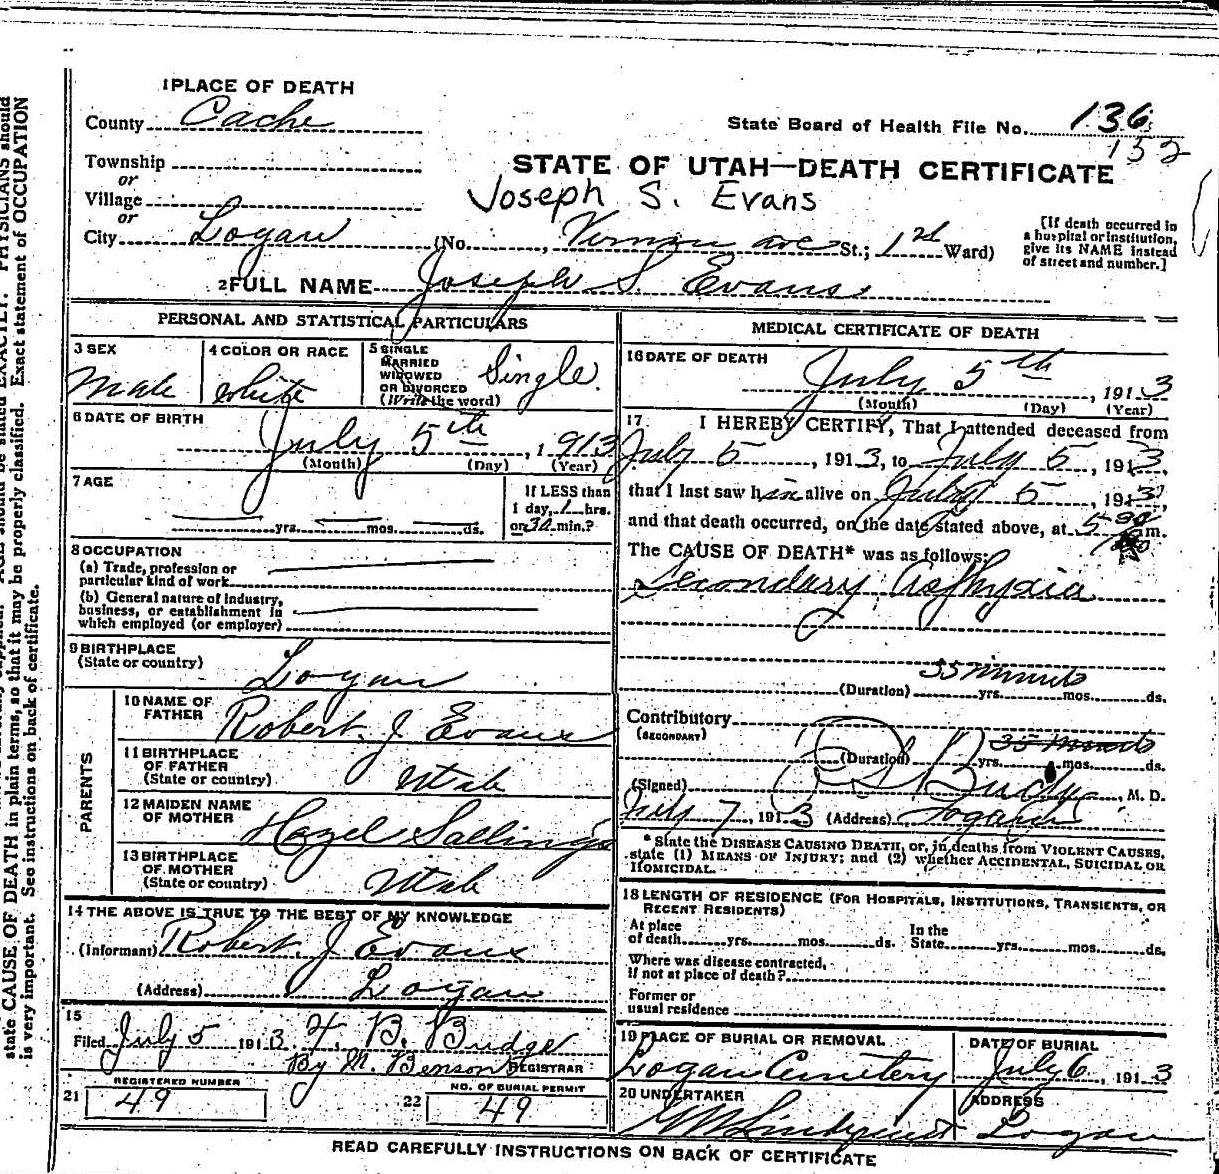 1 PLACE OF DEATH
County Cache
State Board of Health File No. 136
152
Township
or
Village
or
City Logan (No. , Vernon ave St.; 1st Ward)
STATE OF UTAH—DEATH CERTIFICATE
Joseph S. Evans
[If death occurred in
a hospital or institution,
give its NAME instead
of street and number.]
2 FULL NAME Joseph S. Evans
PERSONAL AND STATISTICAL PARTICULARS
3 SEX
Male
4 COLOR OR RACE
White
5 SINGLE
MARRIED
WIDOWED
OR DIVORCED
(Write the word)
Single.
6 DATE OF BIRTH
July 5th, 1913
(Month) (Day) (Year)
7 AGE
yrs. mos. ds.
If LESS than
1 day, 1 hrs.
or 30 min.?
8 OCCUPATION
(a) Trade, profession or
particular kind of work
(b) General nature of industry,
business, or establishment in
which employed (or employer)
9 BIRTHPLACE
(State or country)
Logan
PARENTS
10 NAME OF
FATHER
Robert J Evans
11 BIRTHPLACE
OF FATHER
(State or country)
Utah
12 MAIDEN NAME
OF MOTHER
Hazel Sallings
13 BIRTHPLACE
OF MOTHER
(State or country)
Utah
14 THE ABOVE IS TRUE TO THE BEST OF MY KNOWLEDGE
(Informant) Robert J Evans
(Address) Logan
15
Filed July 5 1913 F. B. Budge
By M. Benson REGISTRAR
21 REGISTERED NUMBER
49
22 NO. OF BURIAL PERMIT
49
MEDICAL CERTIFICATE OF DEATH
16 DATE OF DEATH
July 5th, 1913
(Month) (Day) (Year)
17. I HEREBY CERTIFY, That I attended deceased from
July 5, 1913, to July 5, 1913,
that I last saw him alive on July 5, 1913,
and that death occurred, on the date stated above, at 5 m.
The CAUSE OF DEATH* was as follows:
Secondary Asphyxia
35 minuts
(Duration) yrs. mos. ds.
Contributory
(SECONDARY)
35 minuts
(Duration) yrs. mos. ds.
(Signed) Budge, M. D.
July 7, 1913 (Address) Logan
* State the DISEASE CAUSING DEATH, or, in deaths from VIOLENT CAUSES,
state (1) MEANS OF INJURY; and (2) whether ACCIDENTAL, SUICIDAL OR
HOMICIDAL.
18 LENGTH OF RESIDENCE (FOR HOSPITALS, INSTITUTIONS, TRANSIENTS, OR
RECENT RESIDENTS)
At place
of death yrs. mos. ds.
In the
State yrs. mos. ds.
Where was disease contracted,
if not at place of death?
Former or
usual residence
19 PLACE OF BURIAL OR REMOVAL
Logan Cemetery
DATE OF BURIAL
July 6, 1913
20 UNDERTAKER
Lindquist
ADDRESS
Logan
READ CAREFULLY INSTRUCTIONS ON BACK OF CERTIFICATE
PHYSICIANS should
state CAUSE OF DEATH in plain terms, so that it may be properly classified. Exact statement of OCCUPATION
is very important. See instructions on back of certificate.